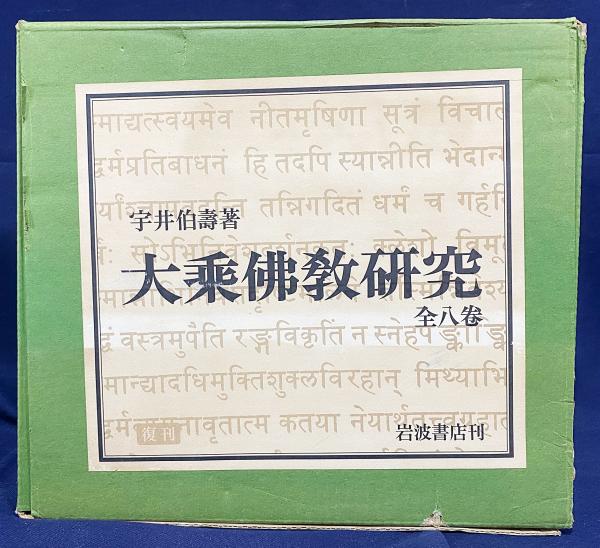 माद्यत्स्वयमेव नीतमृषिणा सूत्रं
द्धर्मप्रतिबाधनं हि तदपि स्यान्नीति
तन्निगदितं धर्मं च
宇井伯壽著
大乘佛教研究
全八巻
वस्त्रमुपैति रङ्गविकृतिं न
मान्द्यादधिमुक्तिशुक्लविरहान् मिथ्याभि
कतया
復刊
岩波書店刊